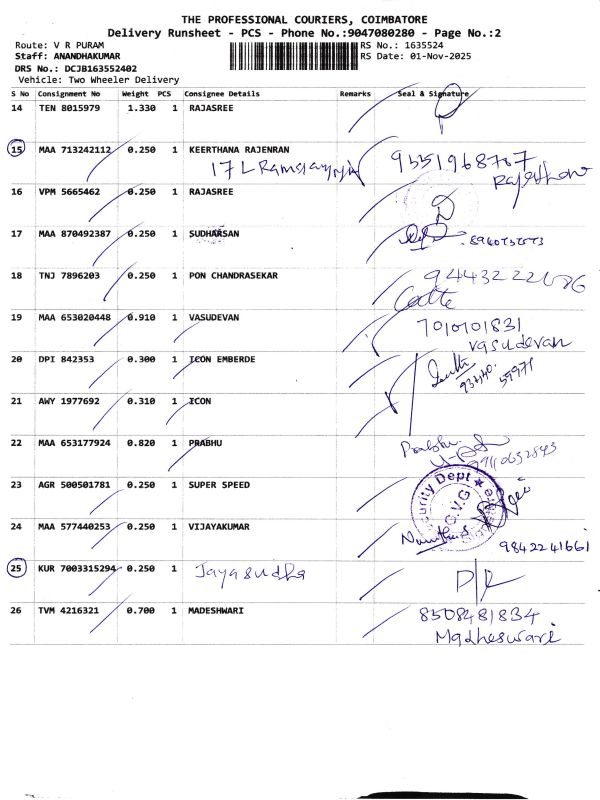 THE PROFESSIONAL COURIERS, COIMBATORE
Delivery Runsheet - PCS - Phone No.:9047080280 - Page No.:2
Route: V R PURAM
RS No.: 1635524
Staff: ANANDHAKUMAR
RS Date: 01-Nov-2025
DRS No.: DCJB163552402
Vehicle: Two Wheeler Delivery
S No Consignment No Weight PCS Consignee Details Remarks Seal & Signature
14 TEN 8015979 1.330 1 RAJASREE
15 MAA 713242112 0.250 1 KEERTHANA RAJENRAN 9551968787
17 L
16 VPM 5665462 0.250 1 RAJASREE
17 MAA 870492387 0.250 1 SUDHARSAN
18 TNJ 7896203 0.250 1 PON CHANDRASEKAR
19 MAA 653020448 0.910 1 VASUDEVAN 7010101831
vasudevan
20 DPI 842353 0.300 1 ICON EMBERDE
21 AWY 1977692 0.310 1 ICON
22 MAA 653177924 0.820 1 PRABHU Prabhu
23 AGR 500501781 0.250 1 SUPER SPEED
24 MAA 577440253 0.250 1 VIJAYAKUMAR
9842241661
25 KUR 7003315294 0.250 1 Jayasudha D/R
26 TVM 4216321 0.700 1 MADESHWARI 8508481834
Madheswari